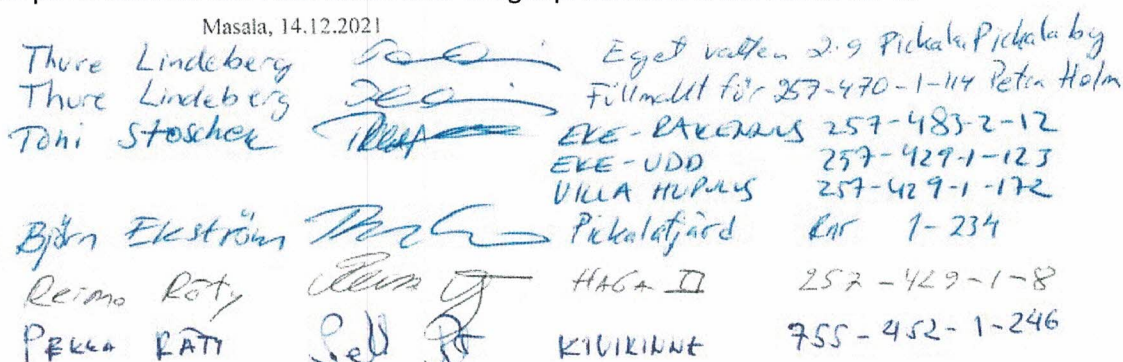 Masala, 14.12.2021
Thure Lindeberg Eget vatten 2:9 Pickala Pickala by
Thure Lindeberg Fullmakt för 257-470-1-114 Petra Holm
Toni Stoschek EKE-RAKENNUS 257-483-2-12
EKE-UDD 257-429-1-123
VILLA HUPULUS 257-429-1-172
Björn Ekström Pickalafjärd Rnr 1-234
Reimo Räty HAGA II 257-429-1-8
PEKKA RÄTI KIVIRINNE 755-452-1-246